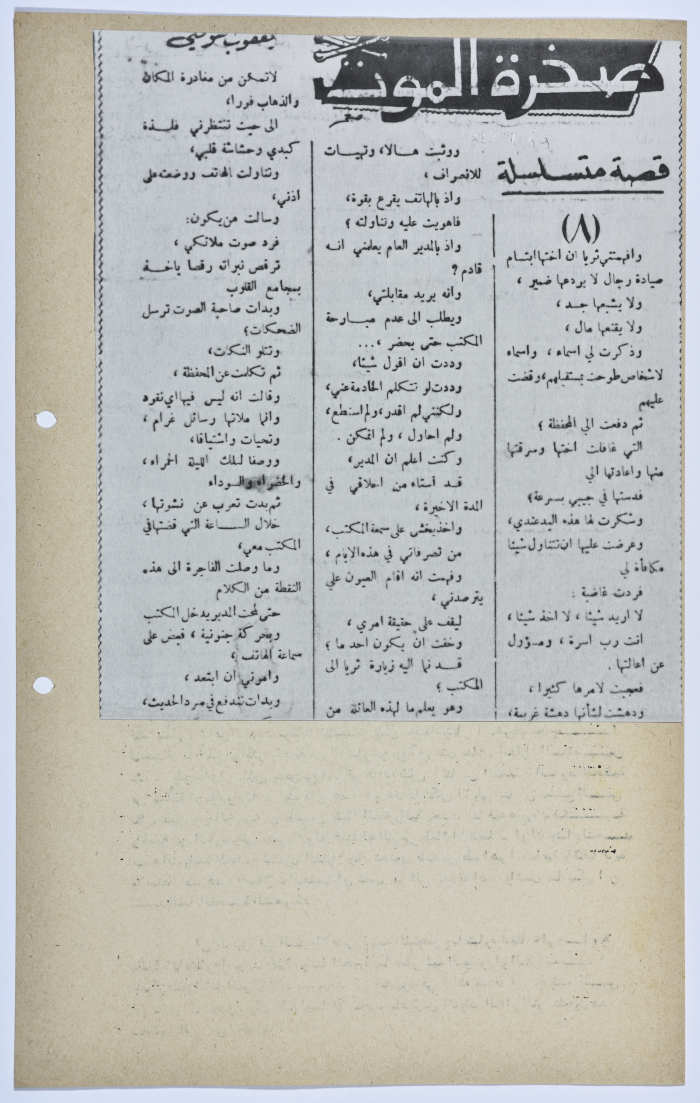 صخرة الموت
قصة متسلسلة
(٨)
وافهمتني ثريا ان اختها ابتسام
صيادة رجال لا يردعها ضمير ،
ولا يشبعها جسد ،
ولا يقنعها مال ،
وذكرت لي اسماء ، واسماء
لاشخاص طوحت بمستقبلهم، وقضت
عليهم
ثم دفعت الي المحفظة ؟
التي غافلت اختها وسرقتها
منها واعادتها الي
فدستها في جيبي بسرعة؟
وشكرت لها هذه اليد عندي،
وعرضت عليها ان تتناول شيئا
مكافأة لي
فردت غاضبة :
لا اريد شيئا ، لا آخذ شيئا ،
انت رب اسرة ، ومسؤول
عن اعالتها .
فعجبت لامرها كثيرا ،
ودهشت لشأنها دهشة غريبة،
ووثبت حالا، وتهيات
للانصراف ،
واذ بالهاتف يقرع بقوة،
فاهويت عليه وتناولته ؟
واذ بالمدير العام يعلمني انه
قادم ؟
وانه يريد مقابلتي،
ويطلب الى عدم مبارحة
المكتب حتى يحضر ،...
وددت ان اقول شيئا،
وددت لو تتكلم الخادمة عني،
ولكنني لم اقدر، ولم استطع،
ولم احاول ، ولم اتمكن .
وكنت اعلم ان المدير،
قد استاء من اخلاقي في
المدة الاخيرة ،
واخذ يخشى على سمعة المكتب،
من تصرفاتي في هذه الايام ،
وفهمت انه اقام العيون علي
يترصدني ،
ليقف على حقيقة امري ،
وخفت ان يكون احد ما ؟
قد نما اليه زيارة ثريا الى
المكتب ؟
وهو يعلم ما لهذه العائلة من
لا تمكن من مغادرة المكان
والذهاب فورا،
الى حيث تنتظرني فلذة
كبدي وحشاشة قلبي،
وتناولت الهاتف ووضعته على
اذني،
وسالت من يكون:
فرد صوت ملائكي ،
ترقص نبراته رقصا ياخذ
بمجامع القلوب
وبدات صاحبة الصوت ترسل
الضحكات؟
وتتلو النكات،
ثم تكلمت عن المحفظة ،
وقالت انه ليس فيها اي نقود
وانما ملاتها رسائل غرام ،
وتحيات واشتياقا،
ووصفا لتلك الليلة الحمراء،
والخضراء والسوداء
ثم بدت تعرب عن نشوتها ،
خلال الساعة التي قضتها في
المكتب معي،
وما وصلت الفاجرة الى هذه
النقطة من الكلام
حتى لمحت المدير يدخل المكتب
وبحركة جنونية ، قبض على
سماعة الهاتف ،
وامرني ان ابتعد ،
وبدات تندفع في سرد الحديث،